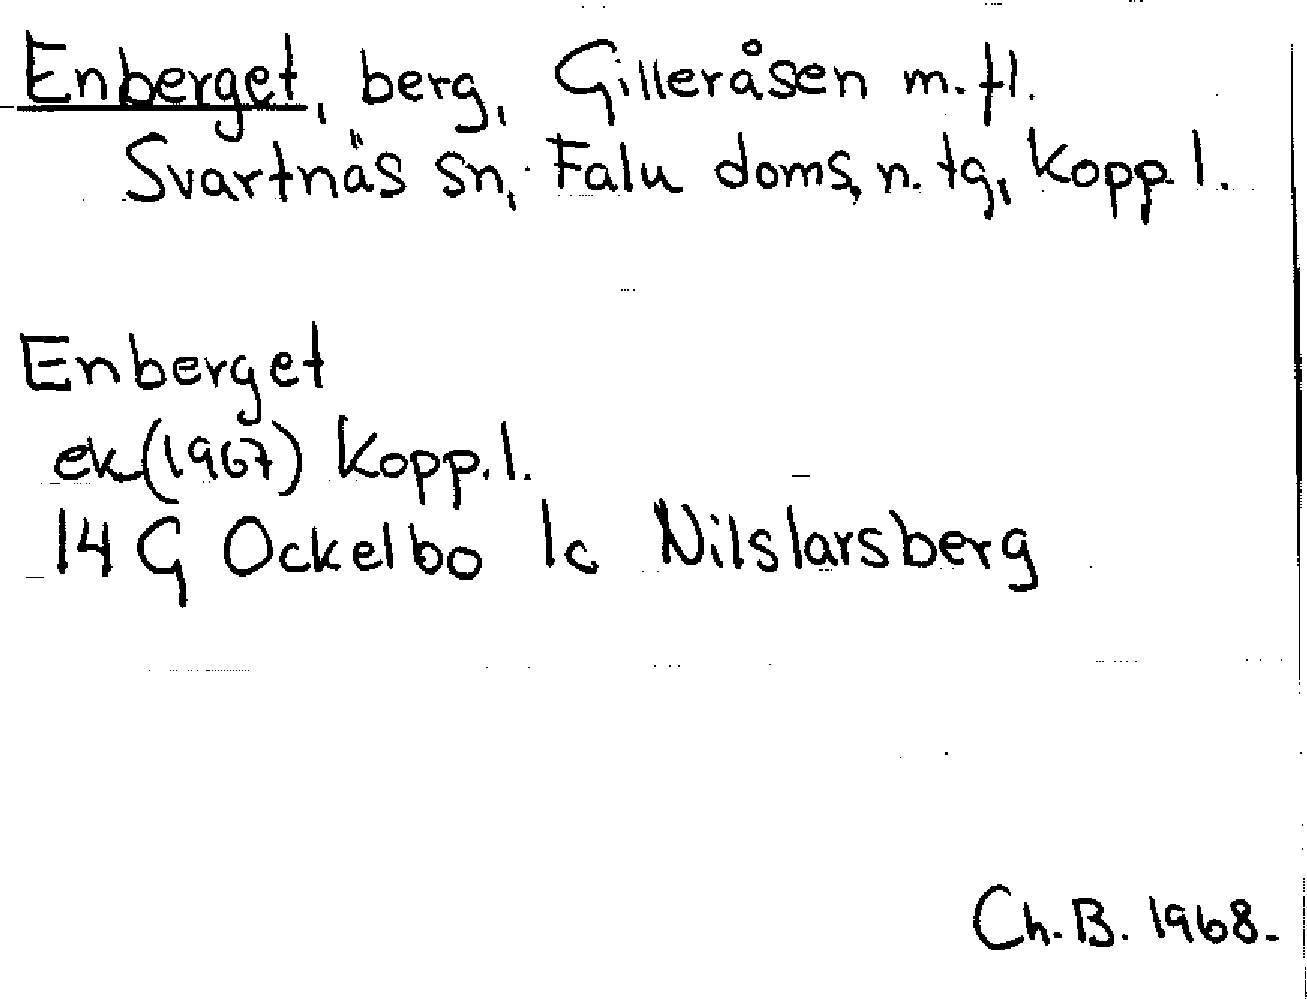 Enberget, berg, Gilleråsen m.fl.
Svartnäs sn, Falu doms, n. tg, Kopp.l.
Enberget
ek (1967) Kopp.l.
14 G Ockelbo 1c Nilslarsberg
Ch.B. 1968.